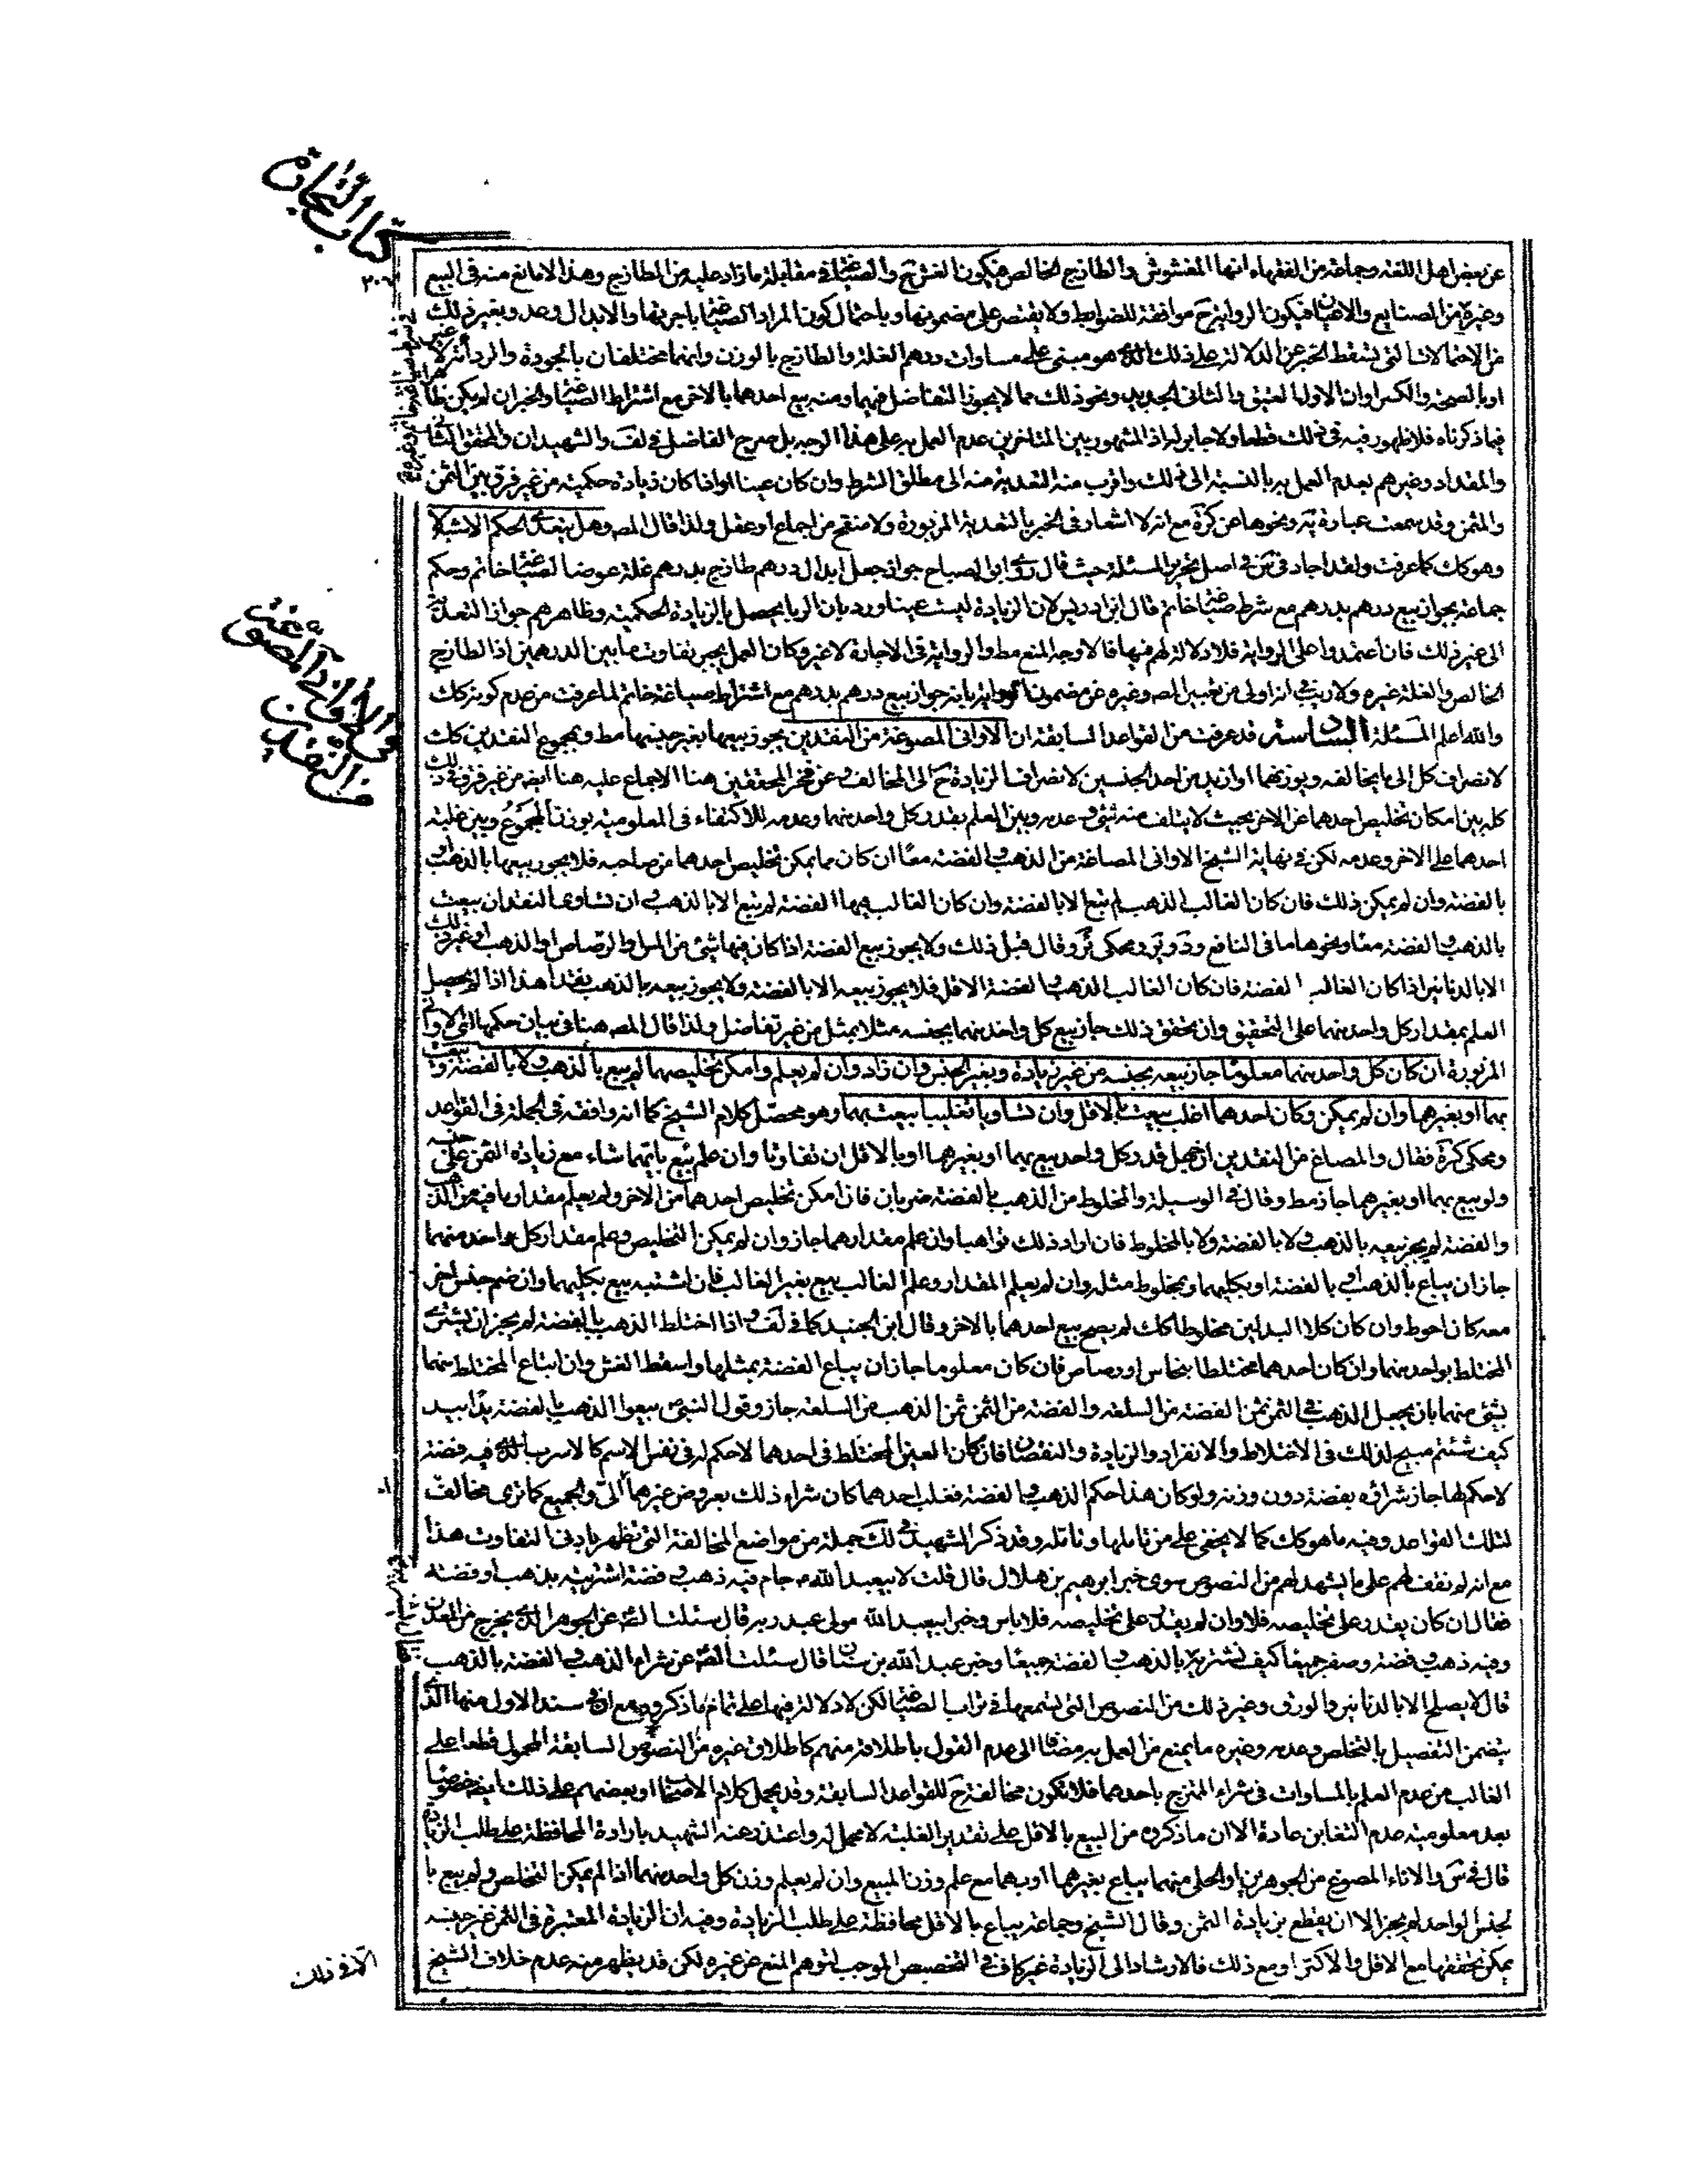 كتاب التجارة
٣٠٦
عن بعض اهل اللغة وجماعة من الفقهاء انها المغشوش والطازج الخالص فيكون الغش ح والصياغة في مقابلة ما زاد عليه من الطازج وهذا لا مانع منه في البيع
وغيره من الصنايع والاعيان فيكون الرواية ح موافقة للضوابط ولا يقتصر على مضمونها وباحتمال كون المراد الصياغة باجرتها والابدال وعد وبغير ذلك
من الاحتمالات التي تسقط الخبر عن الدلالة على ذلك الذي هو مبني على مساوات درهم الغلة والطازج بالوزن وانهما مختلفان بالجودة والرداءة
او بالصحة والكسر او ان الاول العتيق والثاني الجديد ونحو ذلك مما لا يجوز التفاضل فيهما ومنه بيع احدهما بالاخر مع اشتراط الصياغة والخبر ان لم يكن ظا
فيما ذكرناه فلا ظهور فيه في ذلك قطعا ولا جابر له اذ المشهور بين المتاخرين عدم العمل به على هذا الوجه بل صرح الفاضل في لف والشهيدان والمحقق الثاني
والمقداد وغيرهم بعدم العمل به بالنسبة الى ذلك واقرب منه التعدية منه الى مطلق الشرط وان كان عينا او اذا كان زيادة حكمية من غير فرق بين الثمن
والمثمن وقد سمعت عبارة ية ونحوها عن كرة مع انه لا اشعار في الخبر بالتعدية المزبورة ولا منقح من اجماع او عقل ولذا قال المص وهل يتعدى الحكم الاشبه لا
وهو كك كما عرفت ولقد اجاد في س في اصل تحرير المسئلة حيث قال روى ابو الصباح جواز جعل ابدال درهم طازج بدرهم غلة عوضا لصياغة خاتم وحكم
جماعة بجواز بيع درهم بدرهم مع شرط صياغة خاتم قال ابن ادريس لان الزيادة ليست عينا ورد بان الربا يحصل بالزيادة الحكمية وظاهرهم جواز التعدية
الى غير ذلك فان اعتمدوا على الرواية فلا دلالة لهم فيها فالاوجه المنع مط والرواية في الاجارة لا غير وكان العمل يجبر تفاوت ما بين الدرهمين اذ الطازج
الخالص والغلة غيره ولا ريب في انه اولى من تعبير المص وغيره عن مضمون الرواية بانه جواز بيع درهم بدرهم مع اشتراط صياغة خاتم لما عرفت من عدم كونه كك
والله اعلم المسئلة السادسة قد عرفت من القواعد السابقة ان الاواني المصوغة من النقدين يجوز بيعها بغير جنسهما مط وبمجموع النقدين كك
لانصراف كل الى ما يخالفه وبوزنهما او ازيد من احد الجنسين لانصراف الزيادة ح الى المخالف وعن فخر المحققين هنا الاجماع عليه هنا ايضا من غير فرق في ذلك
كله بين امكان تخليص احدهما عن الاخر بحيث لا يتلف منه شئ وعدمه وبين العلم بقدر كل واحد منهما وعدمه للاكتفاء في المعلومية بوزن المجموع وبين غلبة
احدهما على الاخر وعدمه لكن في نهاية الشيخ الاواني المصاغة من الذهب والفضة معا ان كان مما يمكن تخليص احدهما من صاحبه فلا يجوز بيعها بالذهب او
بالفضة وان لم يمكن ذلك فان كان الغالب الذهب لم تبع الا بالفضة وان كان الغالب فيها الفضة لم تبع الا بالذهب وان تساوى النقدان بيعت
بالذهب والفضة معا ونحوها ما في النافع و ومحكي ير وقال قبل ذلك ولا يجوز بيع الفضة اذا كان فيها شئ من المس او الرصاص او الذهب او غير ذلك
الا بالدنانير اذا كان الغالب الفضة فان كان الغالب الذهب والفضة الاقل فلا يجوز بيعه الا بالفضة ولا يجوز بيعه بالذهب نقدا هذا اذا لم يحصل
العلم بمقدار كل واحد منهما على التحقيق وان تحقق ذلك جاز بيع كل واحد منهما بجنسه مثلا بمثل من غير تفاضل ولذا قال المص هنا في بيان حكمها الاواني
المزبورة ان كان كل واحد منهما معلوما جاز بيعه بجنسه من غير زيادة وبغير الجنس وان زاد وان لم يعلم وامكن تخليصهما لم يبع بالذهب ولا بالفضة وبيعت
بهما او بغيرهما وان لم يمكن وكان احدهما اغلب بيعت بالاقل وان تساويا تغليبا بيعت بهما وهو محصل كلام الشيخ كما انه وافقه في الجملة في القواعد
ومحكي كرة فقال والمصاغ من النقدين ان جهل قدر كل واحد بيع بهما او بغيرهما او بالاقل ان تفاوتا وان علم بيع بايهما شاء مع زيادة الثمن على جنسه
ولو بيع بهما او بغيرهما جاز مط وقال في الوسيلة والمخلوط من الذهب والفضة ضربان فان امكن تخليص احدهما من الاخر ولم يعلم مقدار ما فيه من الذهب
والفضة لم يجز بيعه بالذهب ولا بالفضة ولا بالمخلوط فان اراد ذلك تواهبا وان علم مقدارهما جاز وان لم يمكن التخليص وعلم مقدار كل واحد منهما
جاز ان يباع بالذهب او بالفضة او بكليهما وبمخلوط مثله وان لم يعلم المقدار وعلم الغالب بيع بغير الغالب فان اشتبه بيع بكليهما وان ضم جنس اخر
معه كان احوط وان كان كلا البدلين مخلوطا كك لم يصح بيع احدهما بالاخر وقال ابن الجنيد كما في لف اذا اختلط الذهب بالفضة لم يجز ان يشترى
المختلط بواحد منهما وان كان احدهما مختلطا بنحاس او رصاص فان كان معلوما جاز ان يباع الفضة بمثلها واسقط الغش وان ابتاع المختلط منهما
بشئ منهما بان يجعل الذهب في الثمن ثمن الفضة من السلعة والفضة من الثمن ثمن الذهب من السلعة جاز وقول النبي ص بيعوا الذهب بالفضة يدا بيد
كيف شئتم مبيح لذلك في الاختلاط والانفراد والزيادة والنقصان فان كان العين المختلط في احدهما لا حكم له في نفس الاسم كالاسرب الذي فيه فضة
لا حكم لها جاز شراؤه بفضة دون وزنه ولو كان هذا حكم الذهب والفضة فغلب احدهما كان شراء ذلك بعروض غيرهما الى والجميع كما ترى مخالف
لتلك القواعد وفيه ما هو كك كما لا يخفى على من تاملها وتامله وقد ذكر الشهيد في لك جملة من مواضع المخالفة التي تظهر بادنى التفاوت هذا
مع انه لم نقف لهم على ما يشهد لهم من النصوص سوى خبر ابراهيم بن هلال قال قلت لابيعبد الله ع جام فيه ذهب وفضة اشتريه بذهب او فضة
فقال ان كان يقدر على تخليصه فلا وان لم يقدر على تخليصه فلا باس وخبر ابيعبد الله مولى عبد ربه قال سئلت الص ع عن الجوهر الذي يخرج من المعدن
وفيه ذهب وفضة وصفر جميعا كيف نشتريه قال بالذهب والفضة جميعا وخبر عبد الله بن سنان قال سئلت الص ع عن شراء الذهب والفضة بالذهب
قال لا يصلح الا بالدنانير والورق وغير ذلك من النصوص التي تسمعها في تراب الصياغة لكن لا دلالة فيها على تمام ما ذكروه مع ان في سند الاول منها الذي
يتضمن التفصيل بالتخلص وعدمه وغيره ما يمنع من العمل به مضافا الى عدم القول باطلاقه منهم كاطلاق غيره من النصوص السابقة المحمول قطعا على
الغالب من عدم العلم بالمساوات في شراء الممتزج باحدهما فلا تكون مخالفة ح للقواعد السابقة وقد يحمل كلام الاصحاب او بعضهم على ذلك ايضا خصوصا
بعد معلومية عدم التغابن عادة الا ان ما ذكروه من البيع بالاقل على تقدير الغلبة لا محمل له واعتذر عنه الشهيد بارادة المحافظة على طلب الزيادة
قال في س والاناء المصوغ من الجوهرين او الحلي منهما يباع بغيرهما او بهما مع علم وزن المبيع وان لم يعلم وزن كل واحد منهما اذا لم يمكن التخلص ولو بيع با
لجنس الواحد لم يجز الا ان يقطع بزيادة الثمن وقال الشيخ وجماعة يباع بالاقل محافظة على طلب الزيادة وفيه ان الزيادة المعتبرة في الثمن عن جنسه
يمكن تحققها مع الاقل والاكثر ومع ذلك فالارشاد الى الزيادة غير كاف في التخصيص الموجب لتوهم المنع عن غيره لكن قد يظهر منه عدم خلاف الشيخ
في الاواني المصوغة
من النقدين